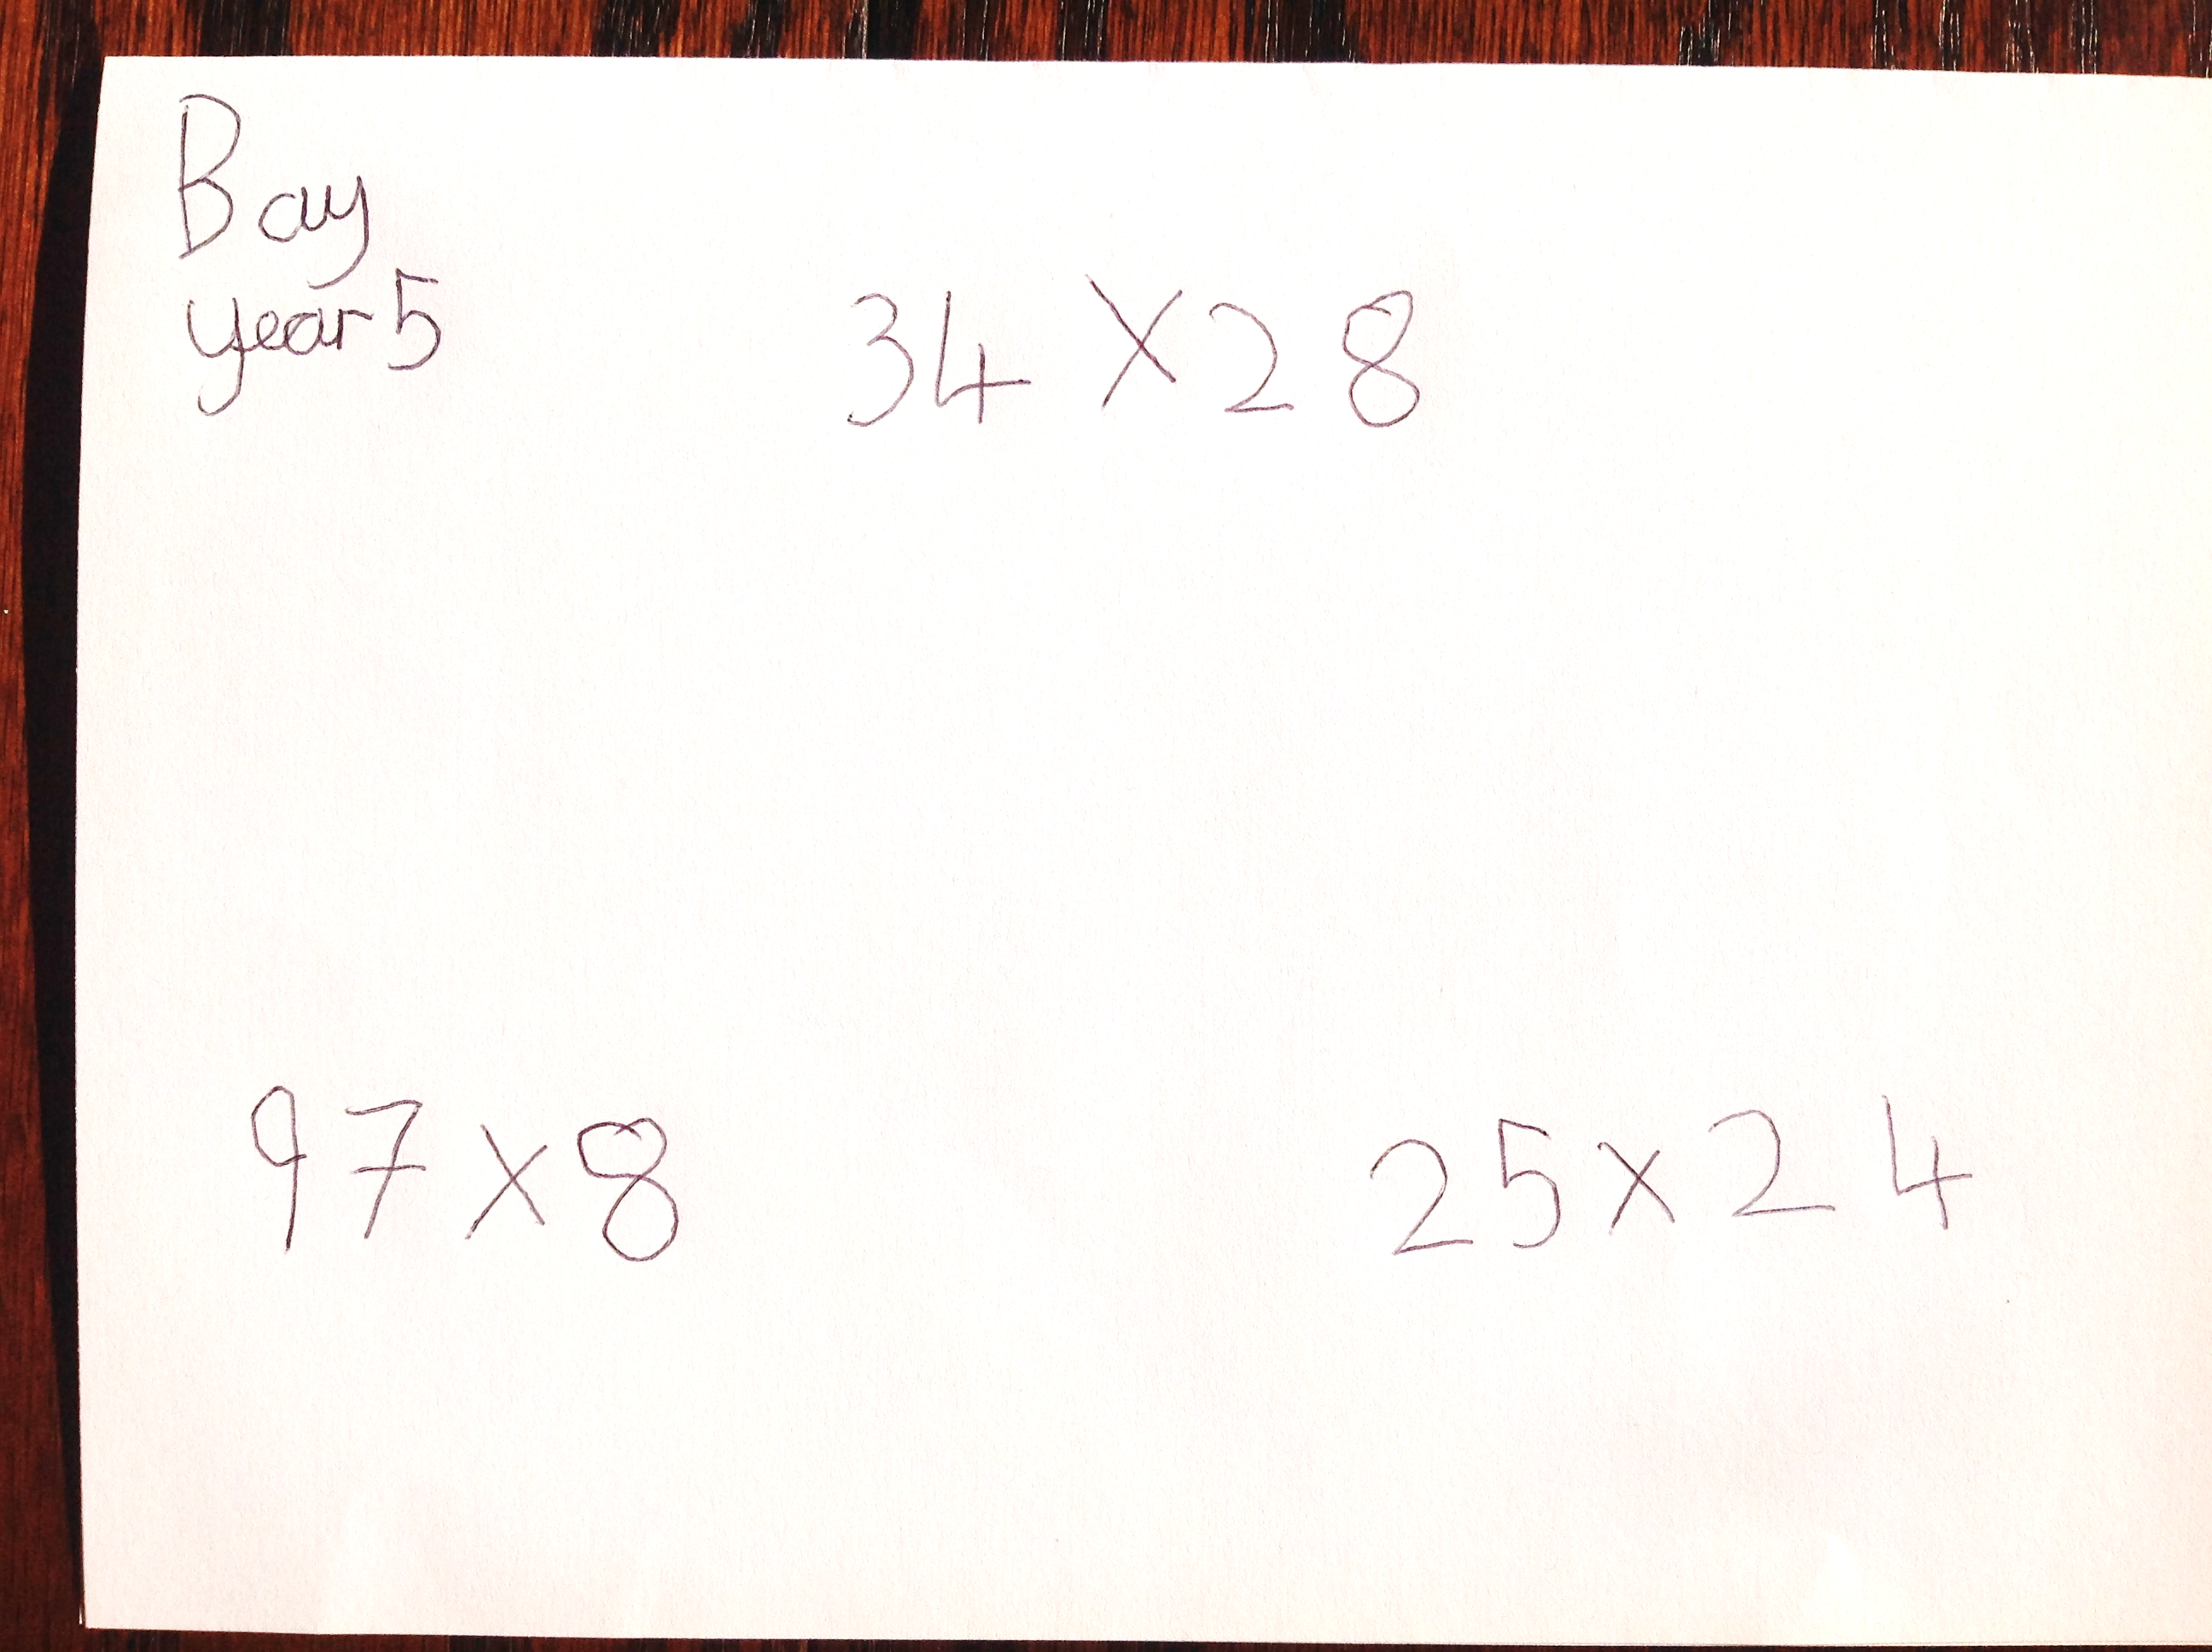 Bay
year 5
34 × 28
97 × 8
25 × 24